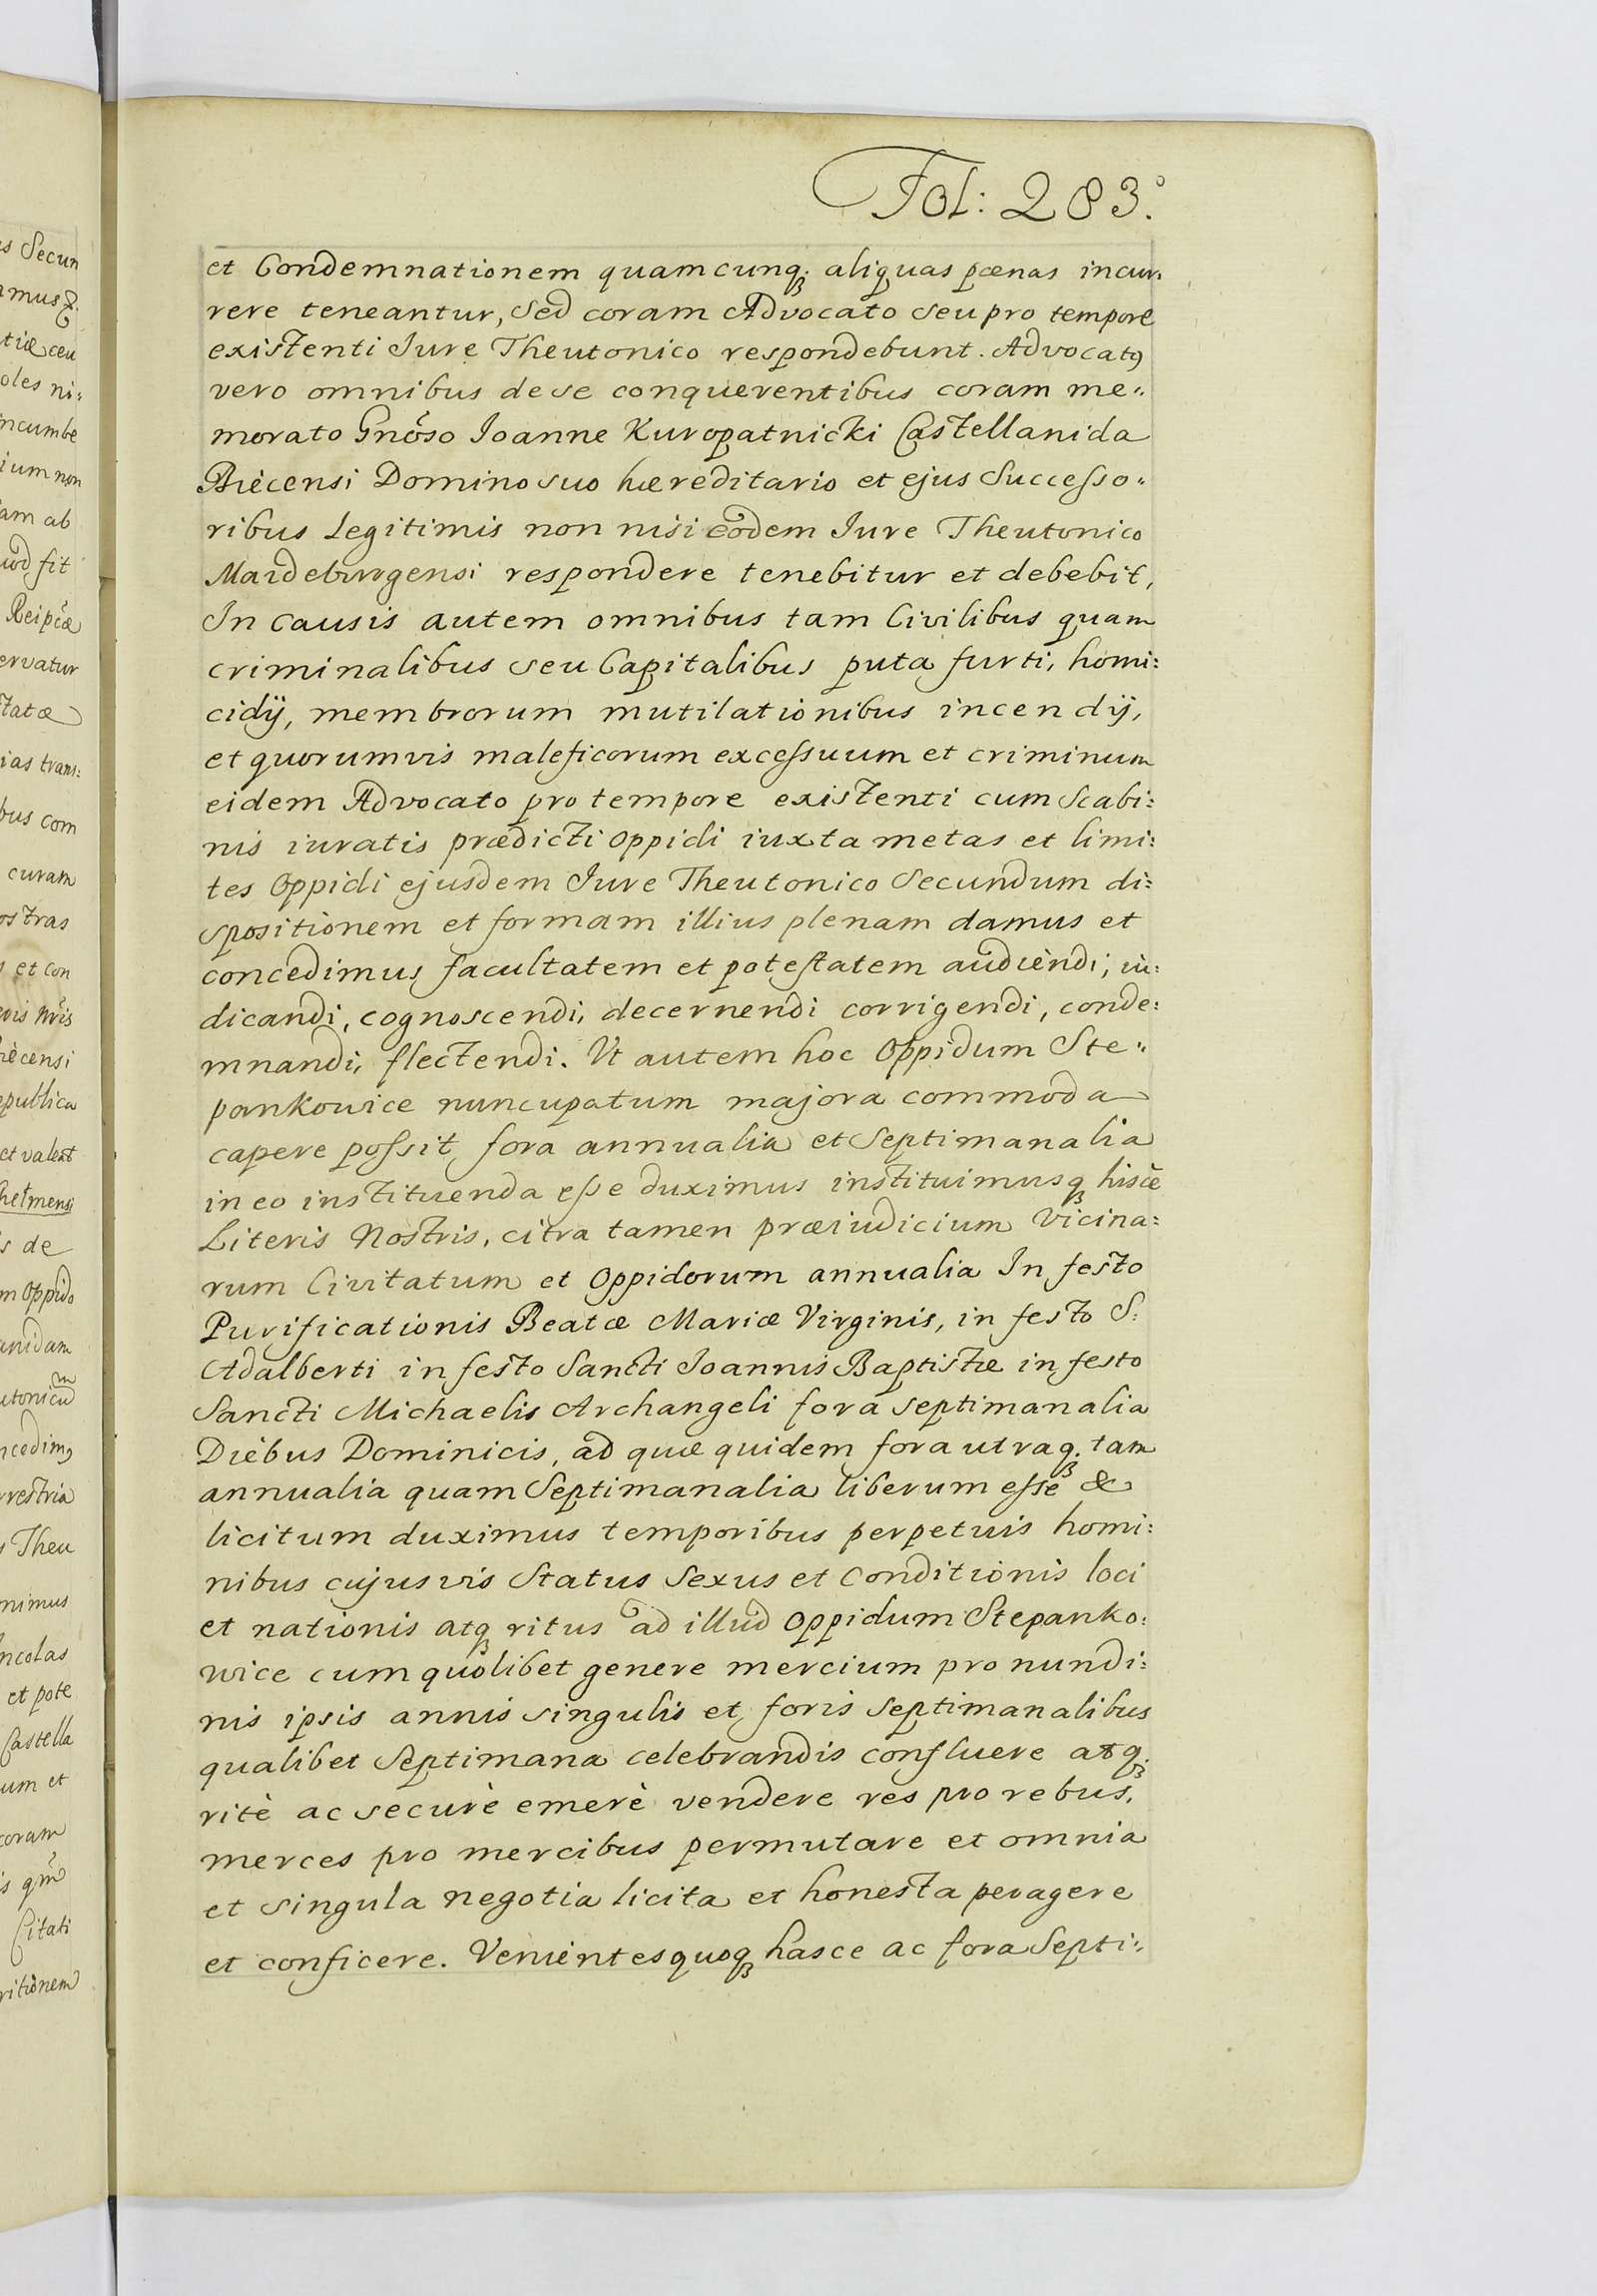 Fol: 283.
et Condemnationem quamcunq; aliquas pœnas incur:
rere teneantur, Sed coram Advocato seu pro tempore
existenti Jure Theutonico respondebunt. Advocatꝰ
vero omnibus de se conquerentibus coram me:
morato Gnōso Joanne Kuropatnicki Castellanida
Biècensi Domino suo hæreditario et ejus Successo:
ribus Legitimis non nisi eodem Jure Theutonico
Maideburgensi respondere tenebitur et debebit,
In Causis autem omnibus tam Civilibus quam
criminalibus seu Capitalibus puta furti, homi:
cidÿ, membrorum mutilationibus incendÿ,
et quorumvis maleficorum excessuum et criminum
eidem Advocato pro tempore existenti cum Scabi:
nis iuratis prædicti oppidi iuxta metas et limi:
tes Oppidi ejusdem Jure Theutonico Secundum di:
spositionem et formam illius plenam damus et
concedimus facultatem et potestatem audièndi, iu:
dicandi, cognoscendi, decernendi corrigendi, conde:
mnandi, flectendi. Vt autem hoc Oppidum Ste:
pankowice nuncupatum majora commoda
capere possit fora annualia et Septimanalia
in eo instituenda esse duximus instituimusq; hiscè
Literis Nostris, citra tamen præiudicium Vicina:
rum Civitatum et Oppidorum annualia In festo
Purificationis Beatæ Mariæ Virginis, in festo S:
Adalberti in festo Sancti Joannis Baptistæ in festo
Sancti Michaelis Archangeli fora septimanalia
Dièbus Dominicis, ad quæ quidem fora utraq; tam
annualia quam Septimanalia liberum esse &
licitum duximus temporibus perpetuis homi:
nibus cujusvis Status Sexus et Conditionis loci
et nationis atq; ritus ad illud Oppidum Stepanko:
wice cum quolibet genere mercium pro nundi:
nis ipsis annis singulis et foris Septimanalibus
qualibet Septimana celebrandis confluere atq;
ritè ac securè emerè vendere res pro rebus,
merces pro mercibus permutare et omnia
et singula negotia licita et honesta peragere
et conficere. Venièntes quoq; hasce ac fora Septi: